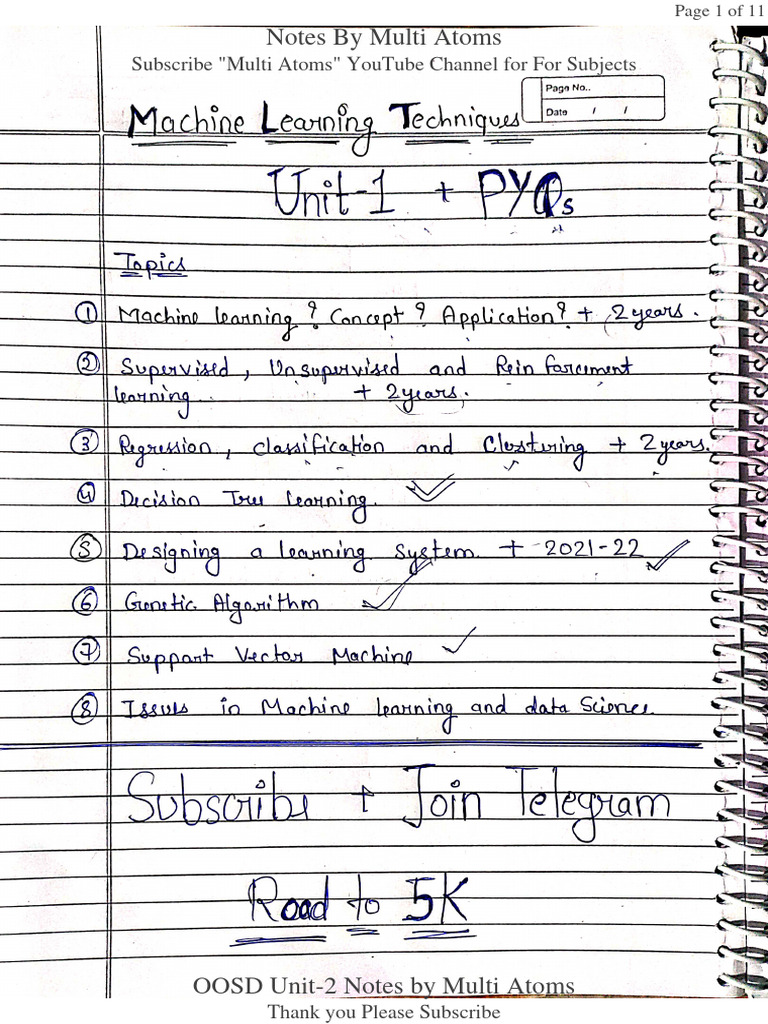 Page 1 of 11
Notes By Multi Atoms
Subscribe "Multi Atoms" YouTube Channel for For Subjects
Page No..
Date / /
Machine Learning Techniques
Unit-1 + PYQs
Topics
① Machine learning ? Concept ? Application? + 2 years.
② Supervised, Unsupervised and Reinforcement
learning + 2 years.
③ Regression, classification and Clustering + 2 years.
④ Decision Tree Learning.
⑤ Designing a learning system + 2021-22
⑥ Genetic Algorithm
⑦ Support Vector Machine
⑧ Issues in Machine learning and data Science.
Subscribe + Join Telegram
Road to 5K
OOSD Unit-2 Notes by Multi Atoms
Thank you Please Subscribe